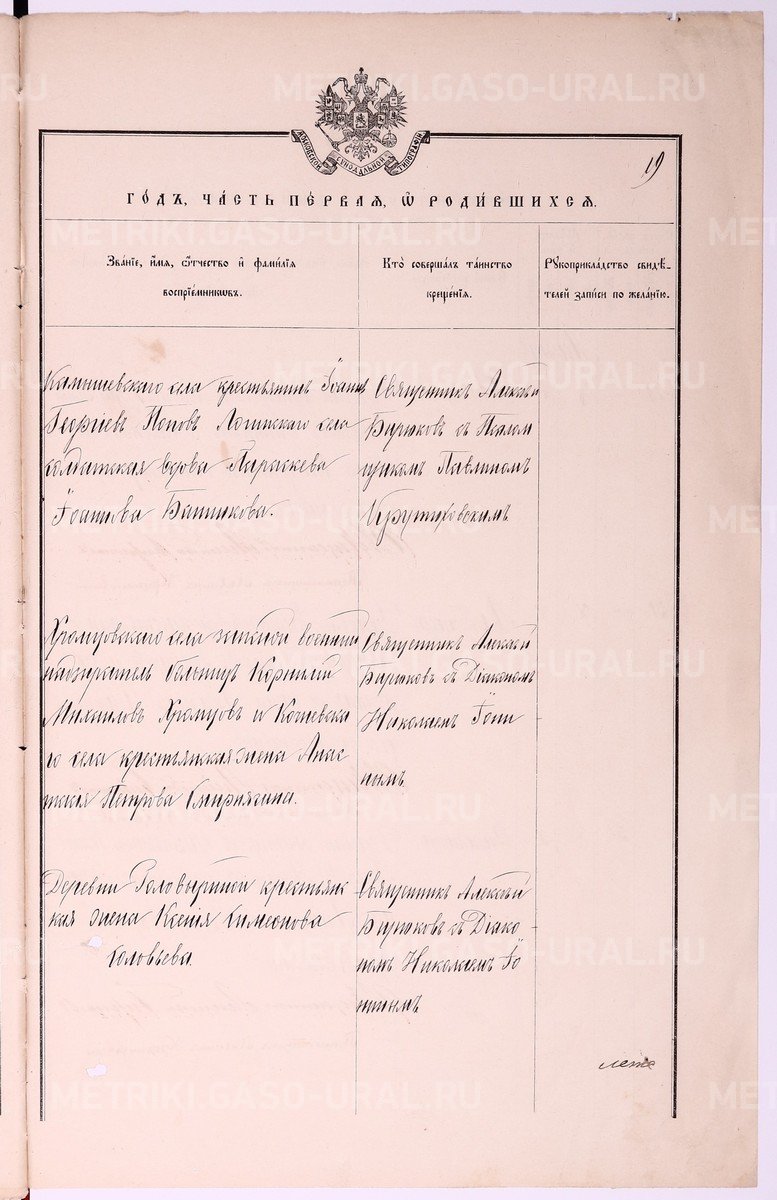 METRIKI.GASO-URAL.RU
МОСКОВСКОЙ СѴНОДАЛЬНОЙ ТИПОГРАФІИ
19
ГО́ДЪ, ЧА́СТЬ ПЕ́РВАЯ, Ѡ РОДИ́ВШИХСЯ.
Зва́нїе, и́мя, ѻ҆́тчество и҆ фами́лїя
воспрїе́мникѡвъ.
Кто̀ соверша́лъ та́инство
креще́нїя.
Рꙋкоприкла́дство свидѣ́-
телей за́писи по жела́нїю.
Камышевскаго села крестьянинъ Іоаннъ
Георгіевъ Поповъ Логинскаго села
солдатская вдова Параскева
Іоаннова Банникова.
Священникъ Алексѣй
Бирюковъ съ Псалом
щикомъ Павлиномъ
Крутиховскимъ
Храмцовскаго села военный
надзиратель больницъ Корнилій
Михаиловъ Храмцовъ и Кочневска
го села крестьянская жена Анас
тасія Петрова Смирнягина.
Священникъ Алексѣй
Бирюковъ съ Діакономъ
Николаемъ Іони
нымъ
Деревни Головыриной крестьянс
кая жена Ксенія Симеонова
Соловьева.
Священникъ Алексѣй
Бирюковъ съ Діако-
номъ Николаемъ Іо
нинымъ